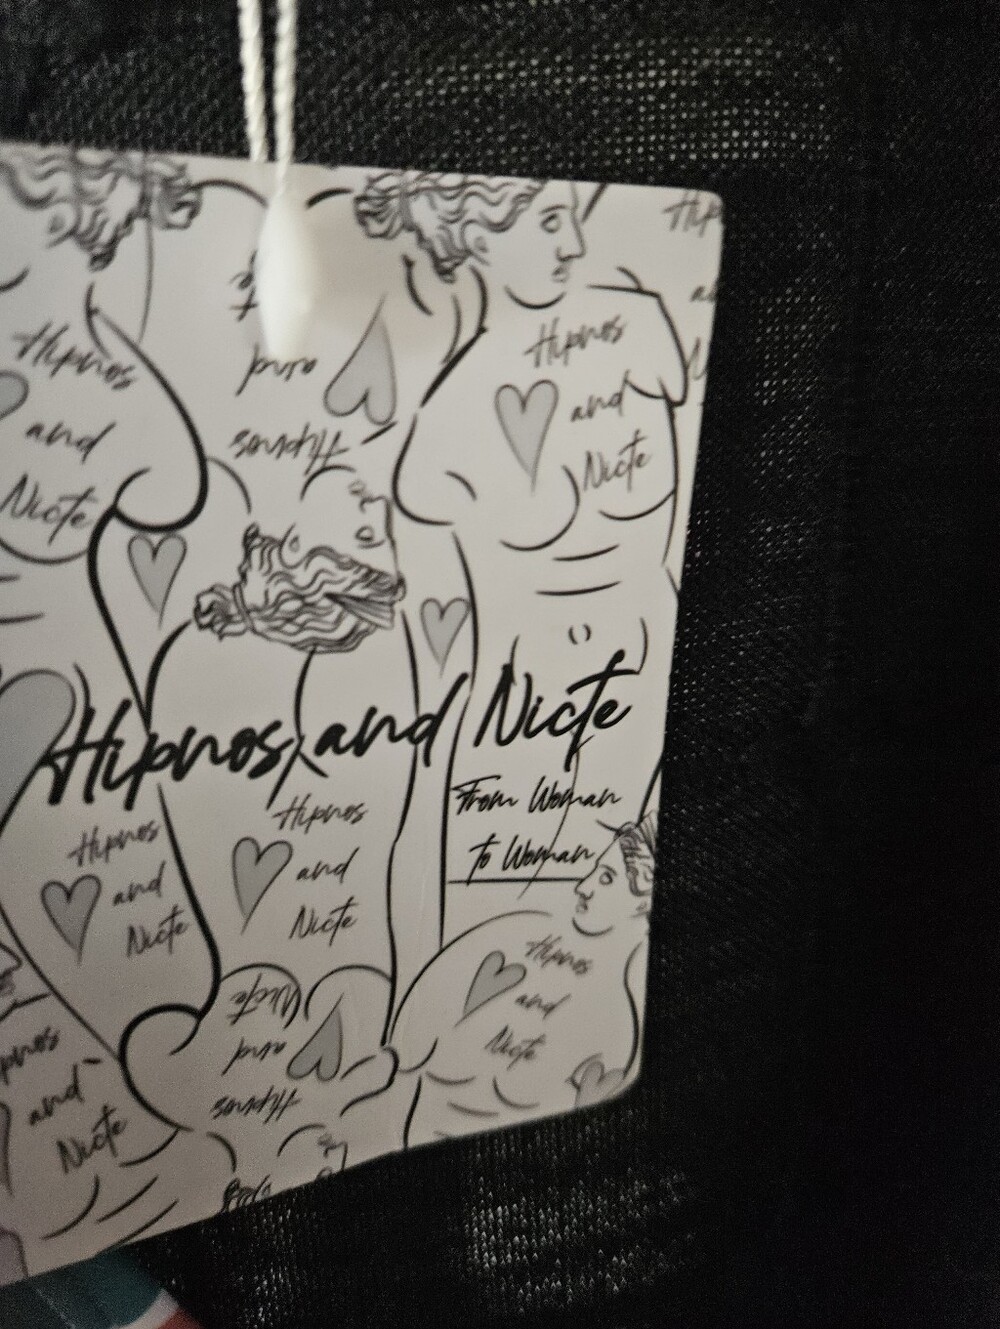 Hip
Hipnos
and
Nicte
and
Hipnos
Hipnos
and
Nicte
Hipnos and Nicte
From Woman
to Woman
Hipnos
and
Nicte
Hipnos
and
Nicte
Hipnos
and
Nicte
Nicte
and
Hipnos
and
Nicte